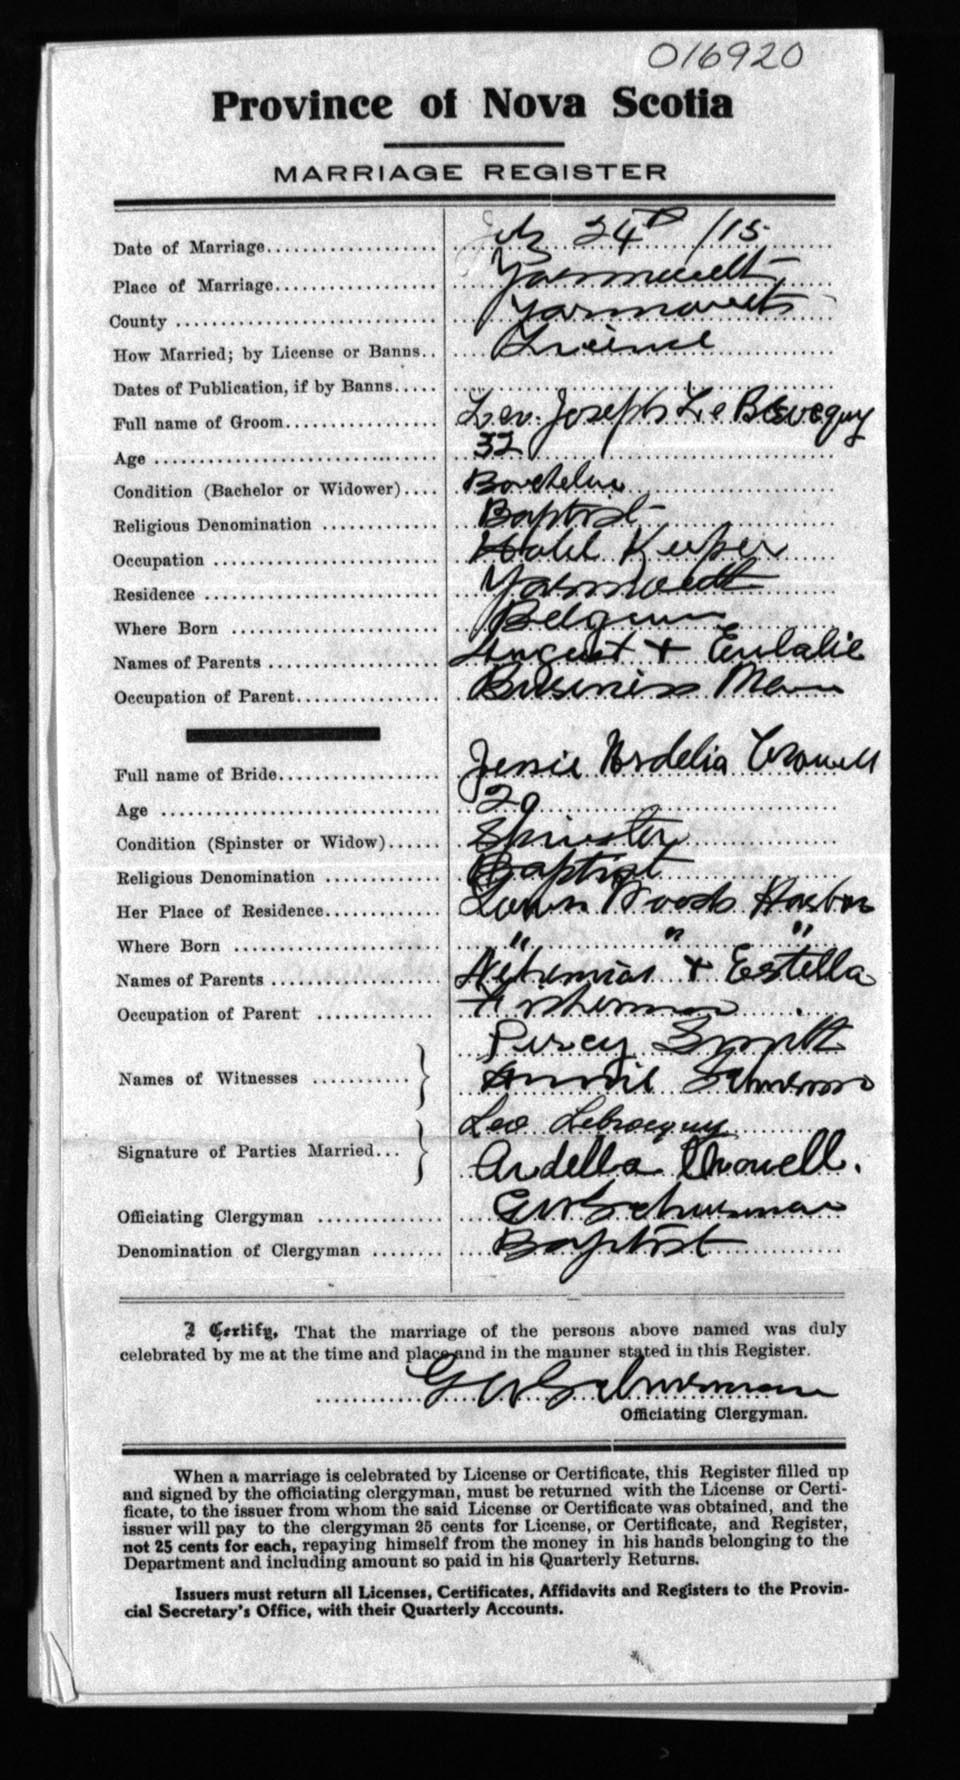 016920
Province of Nova Scotia
MARRIAGE REGISTER
Date of Marriage 24th /15
Place of Marriage Yarmouth
County Yarmouth
How Married; by License or Banns License
Dates of Publication, if by Banns
Full name of Groom Leo Joseph Le
Age 32
Condition (Bachelor or Widower) Bachelor
Religious Denomination Baptist
Occupation Hotel Keeper
Residence Yarmouth
Where Born Belgium
Names of Parents August + Eulalie
Occupation of Parent Business Man
Full name of Bride Jessie Crowell
Age 29
Condition (Spinster or Widow) Spinster
Religious Denomination Baptist
Her Place of Residence Woods Harbor
Where Born " " "
Names of Parents Nehemiah + Estella
Occupation of Parent Fisherman
Percy
Names of Witnesses Annie
Leo Lebrocquy
Signature of Parties Married Ardella Crowell.
Officiating Clergyman G W Schurman
Denomination of Clergyman Baptist
I Certify, That the marriage of the persons above named was duly
celebrated by me at the time and place and in the manner stated in this Register.
G W Schurman
Officiating Clergyman.
When a marriage is celebrated by License or Certificate, this Register filled up
and signed by the officiating clergyman, must be returned with the License or Certi-
ficate, to the issuer from whom the said License or Certificate was obtained, and the
issuer will pay to the clergyman 25 cents for License, or Certificate, and Register,
not 25 cents for each, repaying himself from the money in his hands belonging to the
Department and including amount so paid in his Quarterly Returns.
Issuers must return all Licenses, Certificates, Affidavits and Registers to the Provin-
cial Secretary's Office, with their Quarterly Accounts.